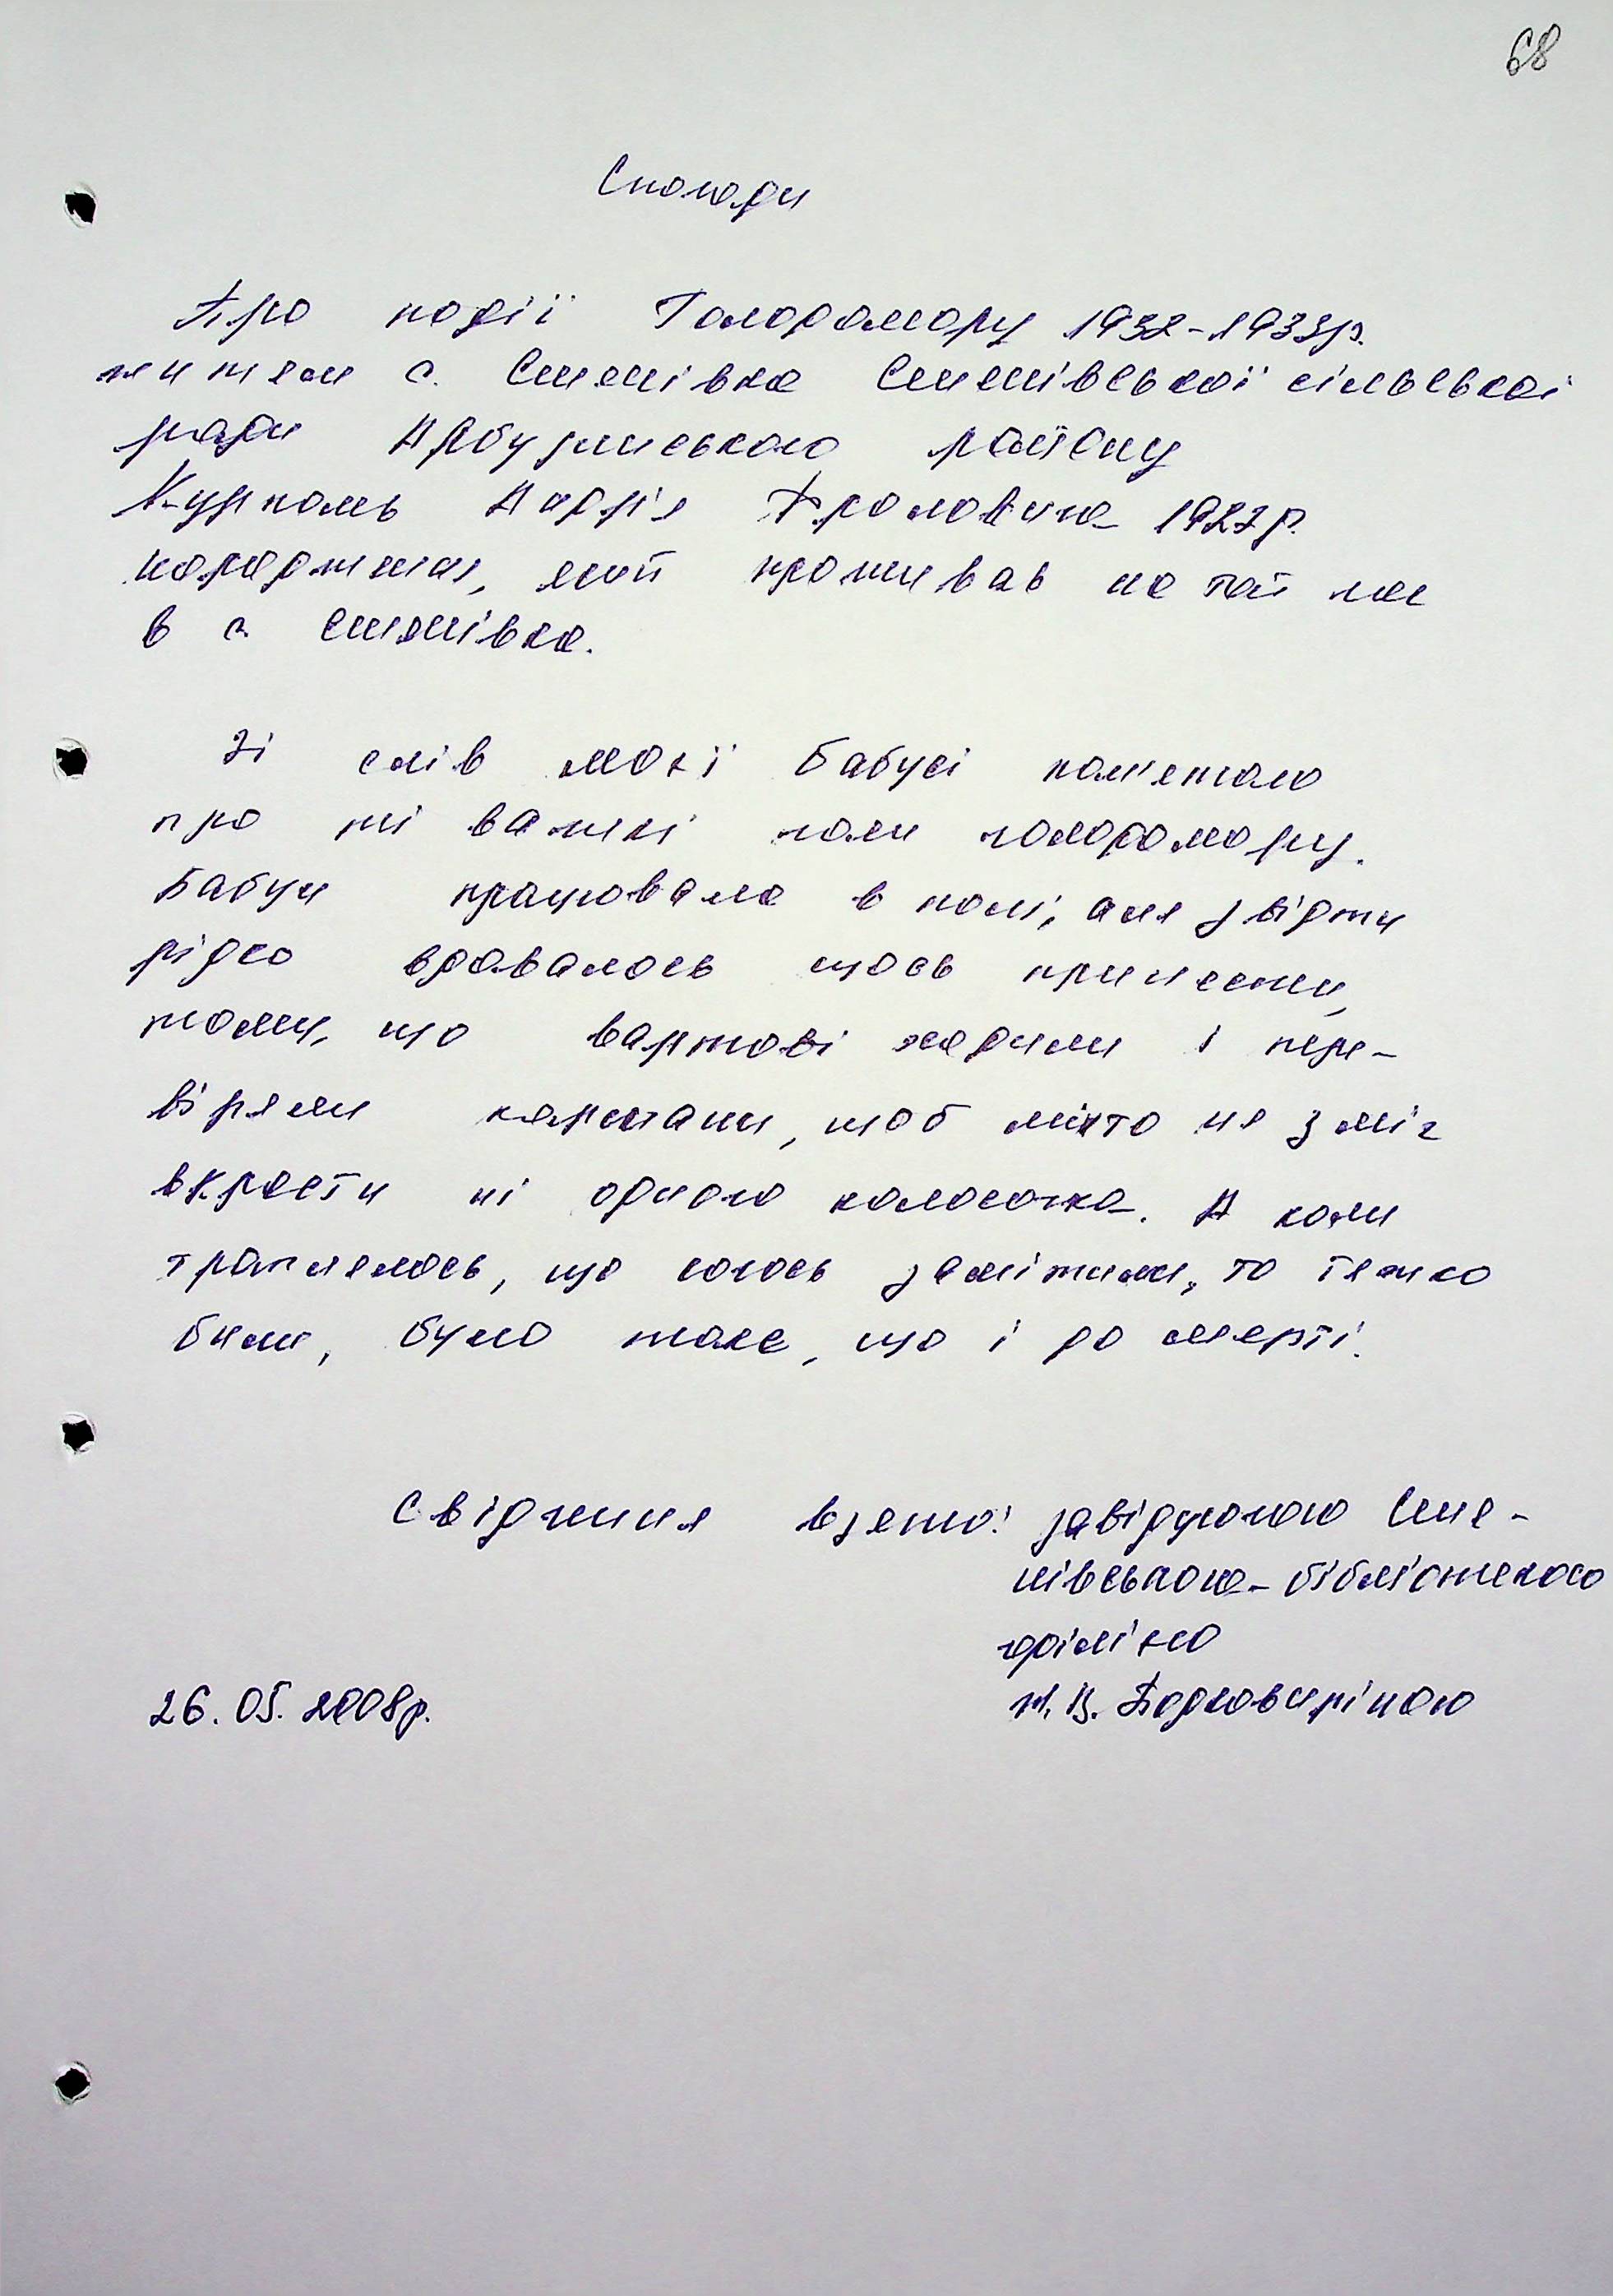 68
Спогади
Про події Голодомору 1932-1933р.
жителя с. Семенівка Семенівської сільської
ради Арбузинського району
Андрія Фроловича 1927р.
народження, який проживав на той час
в с. Семенівка.
Зі слів моєї бабусі пам'ятаю
про ті важкі роки голодомору.
Бабуся працювала в полі, але звідти
рідко вдавалось щось принести,
тому, що вартові ходили і пере-
віряли кармани, щоб ніхто не зміг
вкрасти ні одного колосочка. А коли
траплялось, що когось замітили, то тяжко
били, було таке, що і до смерті.
Свідчення взято: завідуючою Семе-
нівською бібліотекою
філією
26.05.2008р.